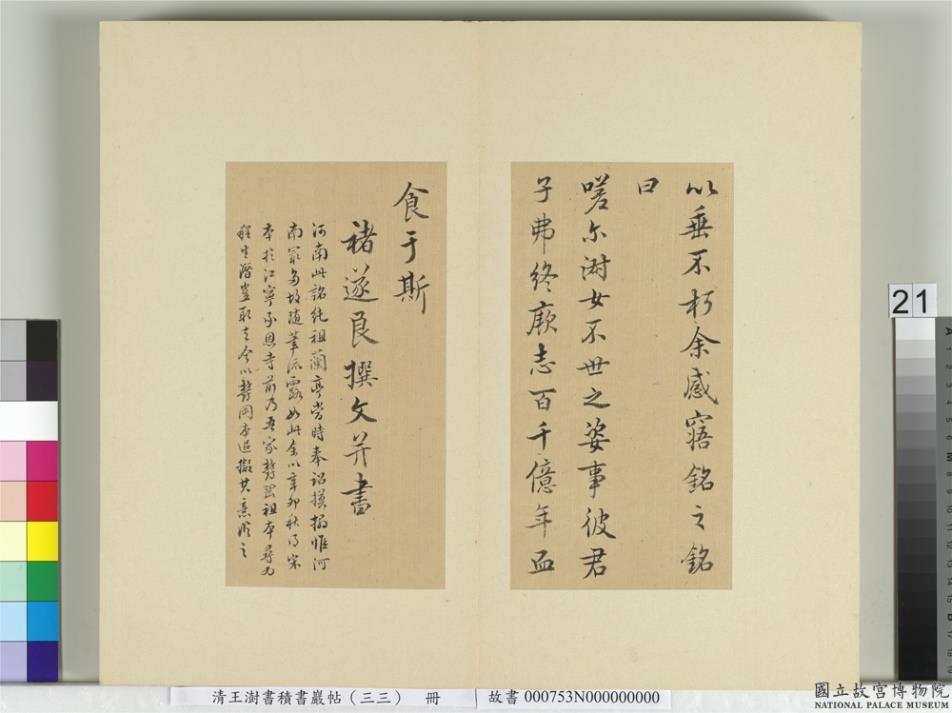 以垂不朽余感寤銘之銘
曰
嗟尔澍女不世之姿事彼君
子弗終厥志百千億年血
食于斯
褚遂良撰文并書
河南此銘純祖蘭亭當時奉詔摸搨惟河
南最多故隨筆流露如此余以辛卯秋得宋
本於江寧承恩寺前乃吾家 祖本尋為
程生 取去今以 岡本追擬其意 之
21
清王澍書積書巖帖（三三） 冊
故書 000753N000000000
國立故宮博物院
NATIONAL PALACE MUSEUM